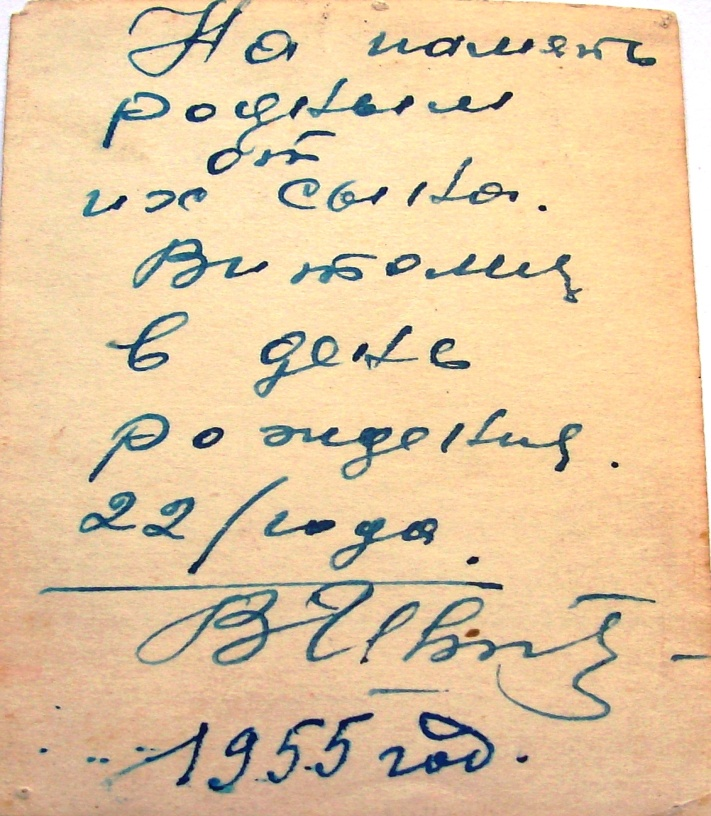 На память
родным
от
их сына.
Виталия
в день
рождения.
22/года.
1955 год.